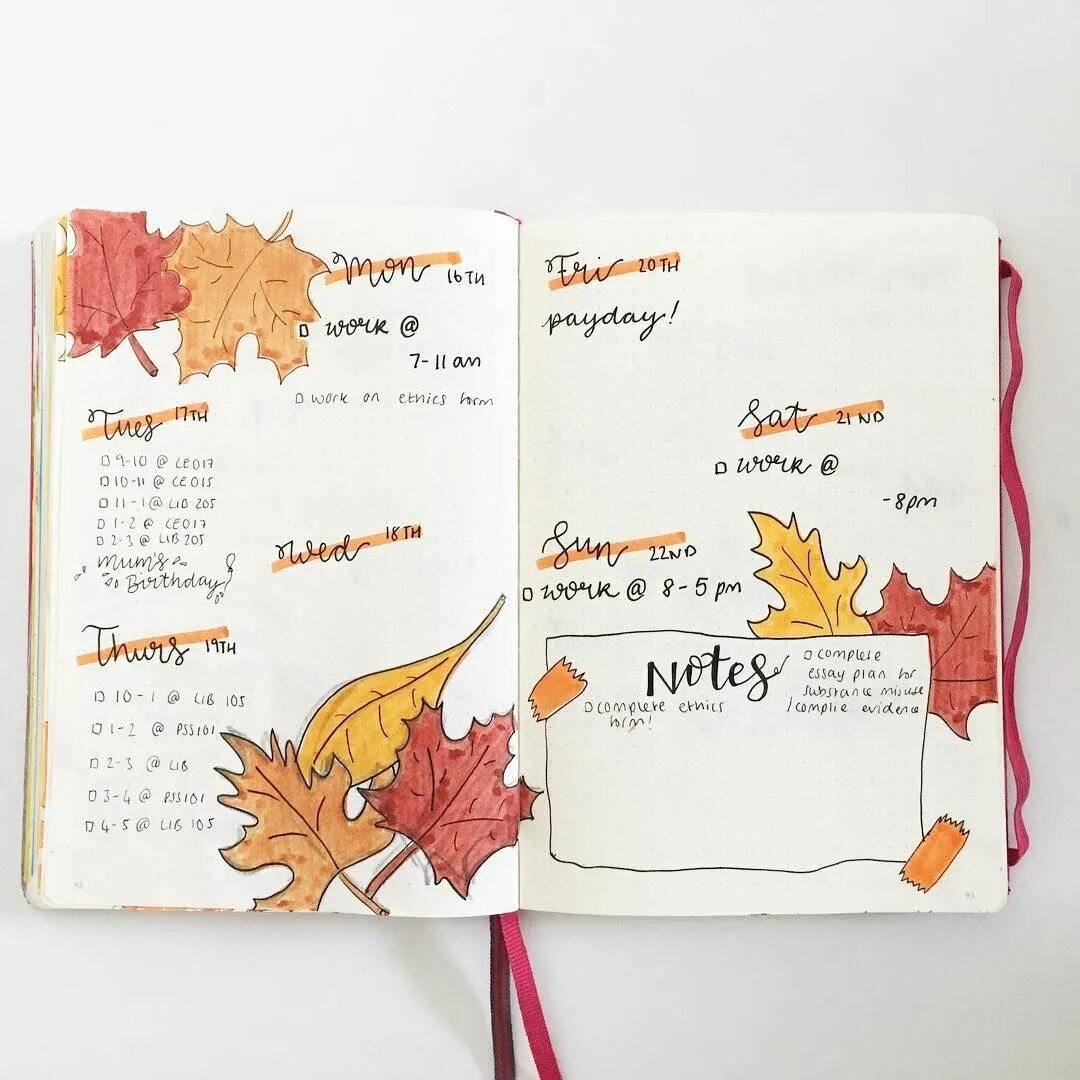 Mon 16TH
□ work @
7-11 am
□ work on ethics form
Tues 17TH
□ 9-10 @ CE017
□ 10-11 @ CE015
□ 11-1 @ LIB 205
□ 1-2 @ CE017
□ 2-3 @ LIB 205
Mum's
Birthday
Wed 18TH
Thurs 19TH
□ 10-1 @ LIB 105
□ 1-2 @ PSS101
□ 2-3 @ LIB
□ 3-4 @ PSS101
□ 4-5 @ LIB 105
Fri 20TH
payday!
Sat 21ND
□ work @
-8pm
Sun 22ND
□ work @ 8-5 pm
Notes
□ complete ethics
form!
□ complete
essay plan for
substance misuse
/complie evidence